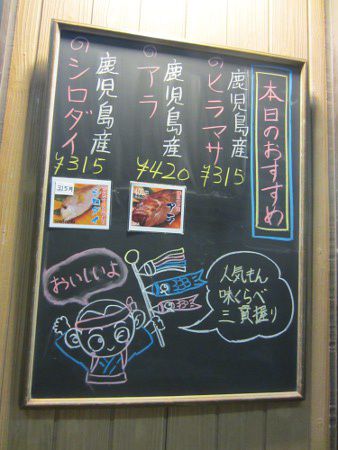 本日のおすすめ
鹿児島産
のヒラマサ
¥315
鹿児島産
のアラ
¥420
鹿児島産
のシロダイ
¥315
315円
シロダイ
アラ
おいしいよ
人気もん
味くらべ
三貫握り